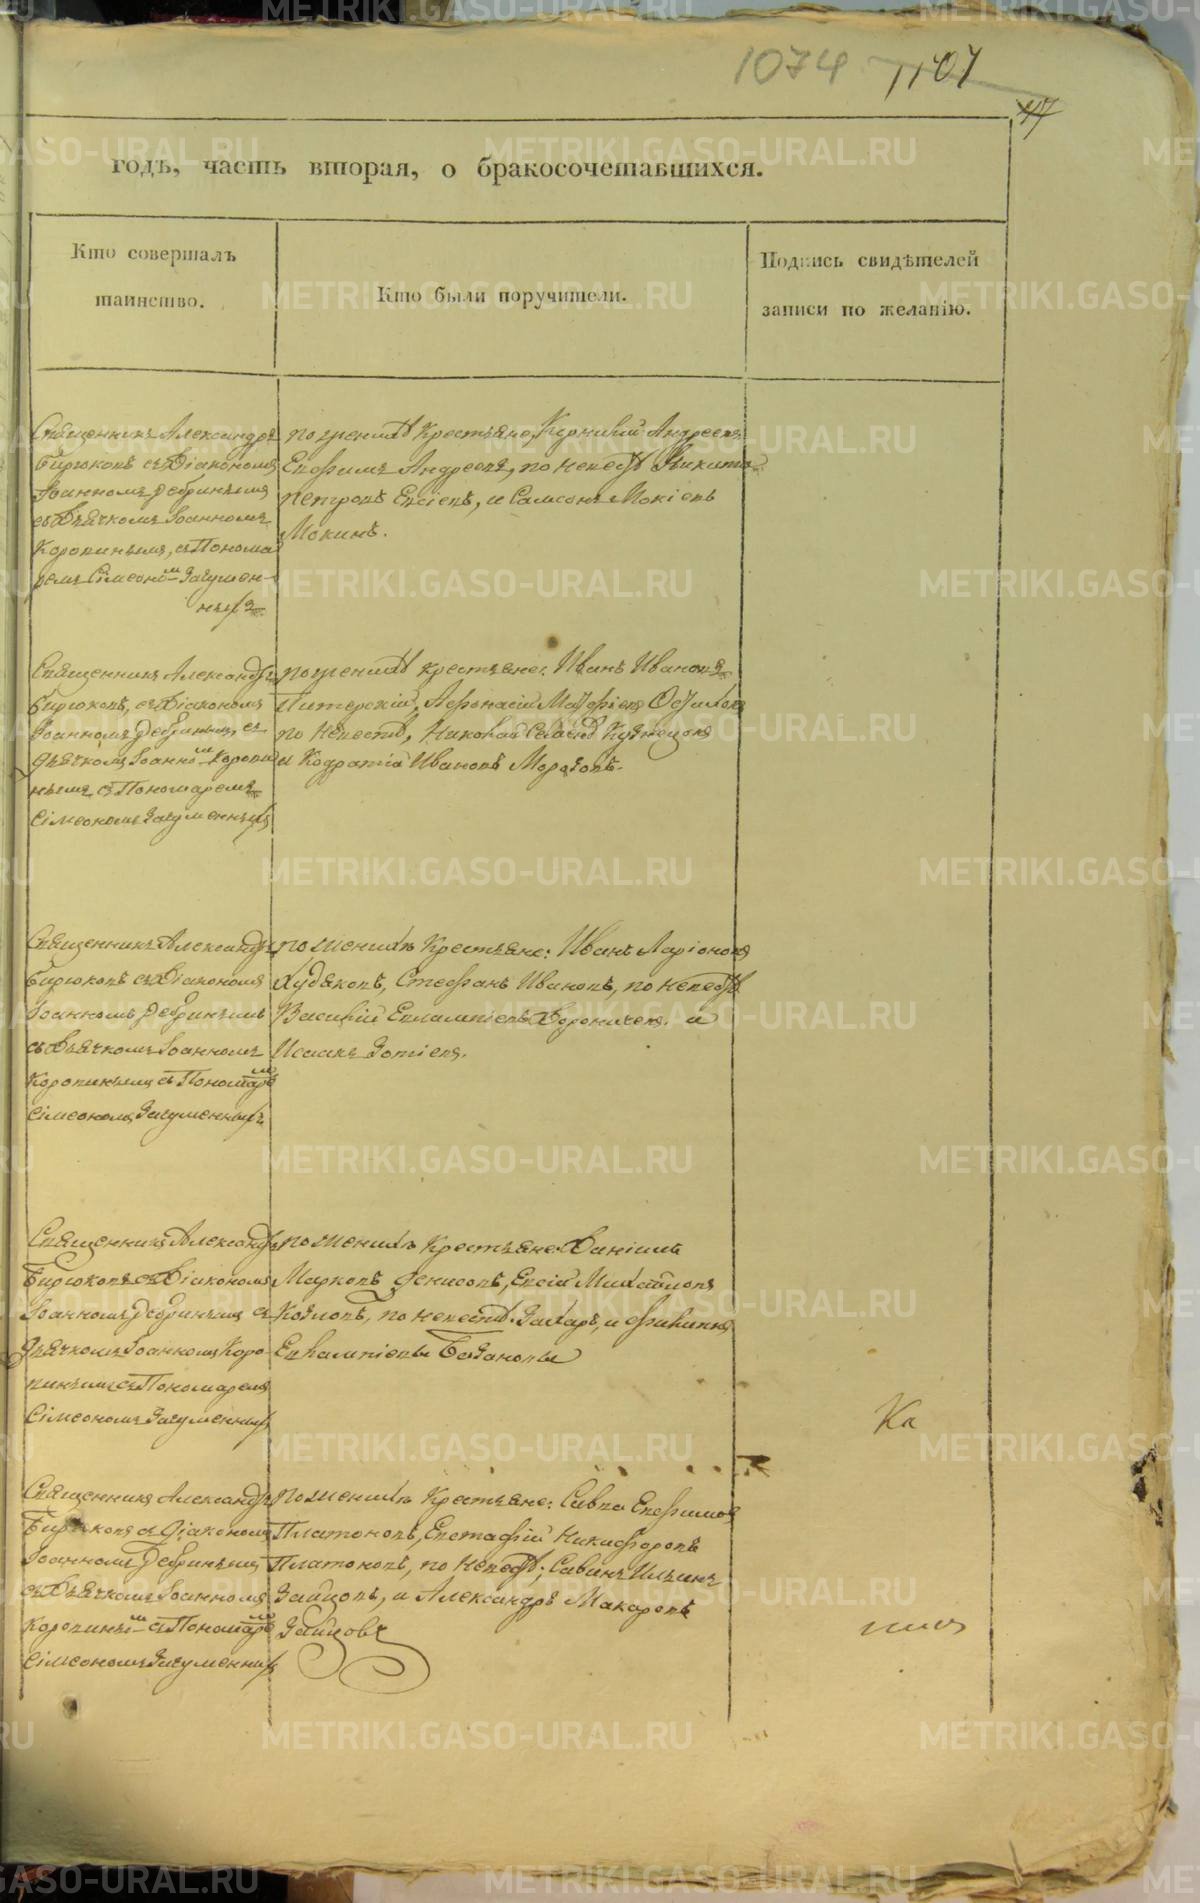 1074 1107
47
годъ, часть вторая, о бракосочетавшихся.
Кто совершалъ
таинство.
Кто были поручители.
Подпись свидѣтелей
записи по желанію.
Священникъ Александръ
Бирюковъ съ Діакономъ
Іоанномъ Дебринымъ
съ Дьячкомъ Іоанномъ
Коровинымъ, съ Понома
ремъ Сімеономъ Загумен-
нымъ
по женихѣ Крестьяне, Андреевъ
Ефимъ Андреевъ, по невестѣ Никита
Петровъ Евсіевъ, и Самсонъ Мокіевъ
Мокинъ.
Священникъ Александръ
Бирюковъ, съ Діакономъ
Іоанномъ Дебринымъ, съ
Дьячкомъ Іоанномъ Корови
нымъ съ Пономаремъ
Сімеономъ Загуменнымъ
по женихѣ крестьяне: Иванъ Ивановъ
Питерскій, Афонасій Матфіевъ
по невестѣ, Николай Кузнецовъ
и Кодратій Ивановъ Морозовъ.
Священникъ Александръ
Бирюковъ съ Діакономъ
Іоанномъ Дебринымъ
съ Дьячкомъ Іоанномъ
Коровинымъ съ Пономаремъ
Сімеономъ Загуменнымъ
по женихѣ Крестьяне: Иванъ Ларіоновъ
Худяковъ, Стефанъ Ивановъ, по невестѣ
Василій Евлампіевъ и
Исаакъ Зотіевъ.
Священникъ Александръ
Бирюковъ съ Діакономъ
Іоанномъ Дебринымъ съ
Дьячкомъ Іоанномъ Коро-
винымъ съ Пономаремъ
Сімеономъ Загуменнымъ
по женихѣ Крестьяне Даніилъ
Марковъ Денисовъ, Евсій Михайловъ
Козловъ, по невестѣ Захаръ, и Филиппъ
Евлампіевы Базановы
Ка
Священникъ Александръ
Бирюковъ съ Діакономъ
Іоанномъ Дебринымъ
съ Дьячкомъ Іоанномъ
Коровинымъ съ Пономаремъ
Сімеономъ Загуменнымъ
по женихѣ Крестьяне: Савва Ефимовъ
Платоновъ, Евстафій Никифоровъ
Платоновъ, по невестѣ; Савинъ Ильинъ
Зайцовъ, и Александръ Макаровъ
Зайцовъ
METRIKI.GASO-URAL.RU